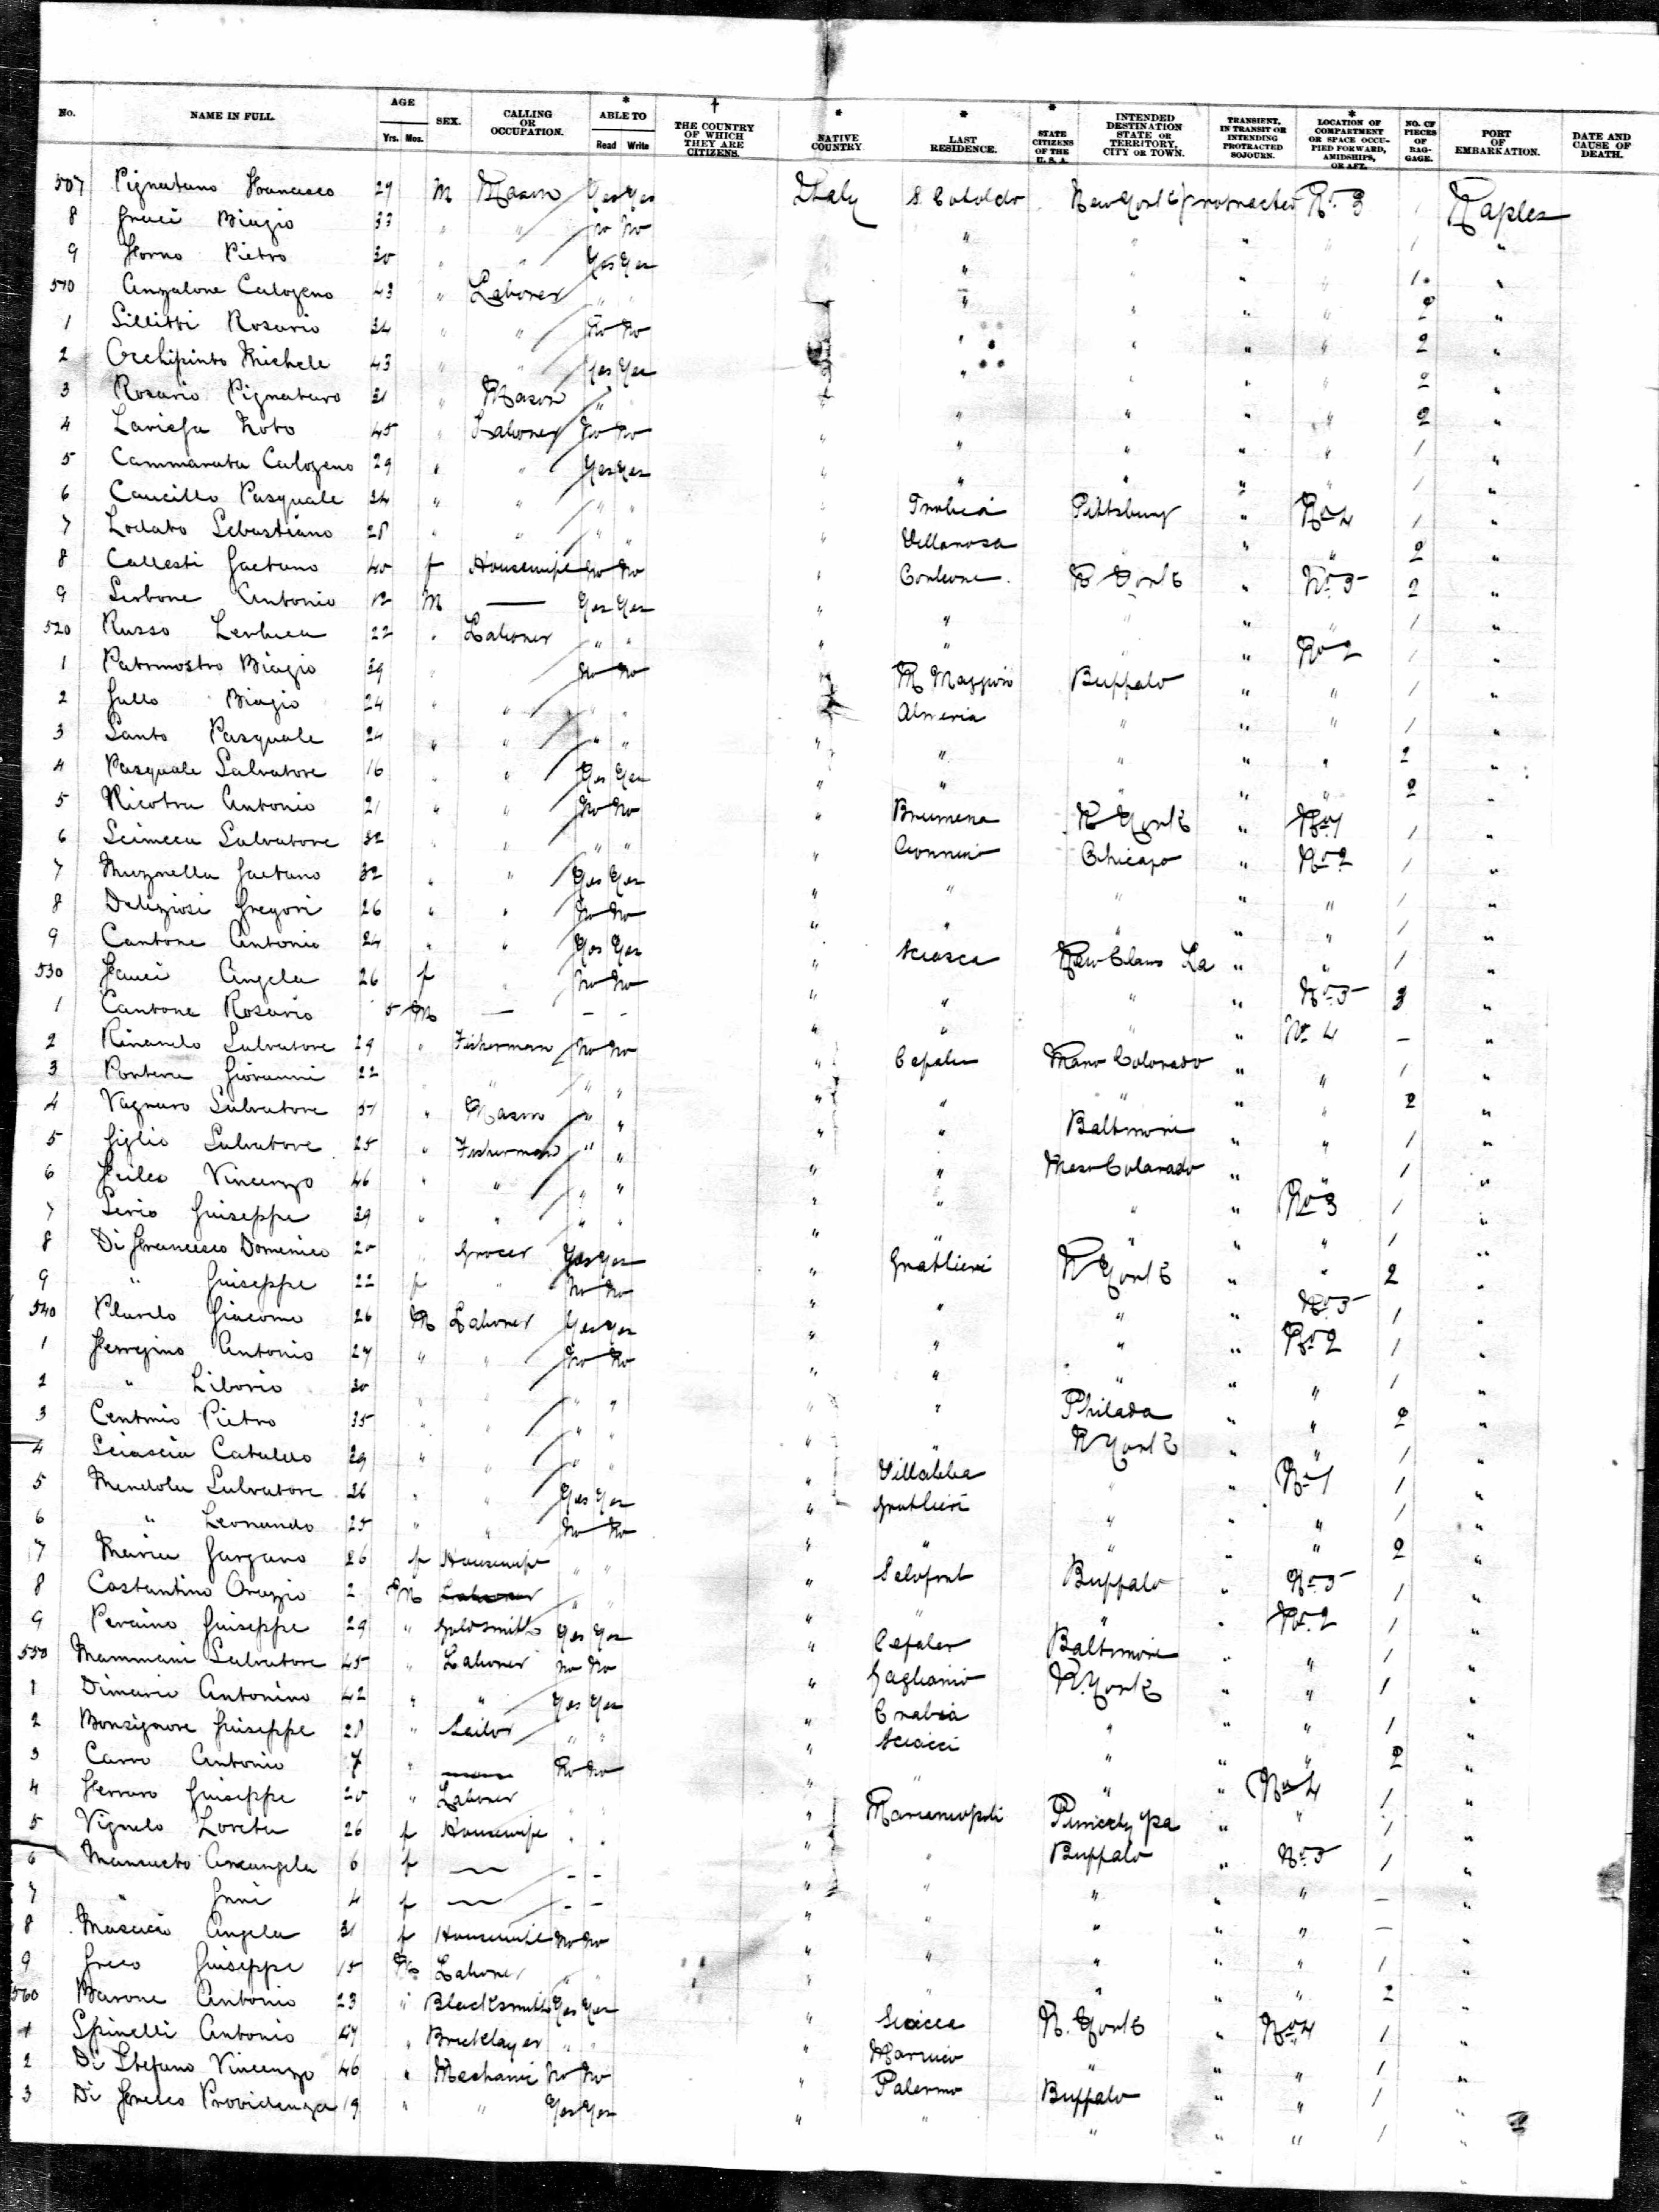 No. NAME IN FULL. AGE Yrs. Mos. SEX. CALLING OR OCCUPATION. * ABLE TO Read Write † THE COUNTRY OF WHICH THEY ARE CITIZENS. * NATIVE COUNTRY. * LAST RESIDENCE. * STATE CITIZENS OF THE U. S. A. INTENDED DESTINATION STATE OR TERRITORY, CITY OR TOWN. TRANSIENT, IN TRANSIT OR INTENDING PROTRACTED SOJOURN. * LOCATION OF COMPARTMENT OR SPACE OCCUPIED FORWARD, AMIDSHIPS, OR AFT. NO. OF PIECES OF BAGGAGE. PORT OF EMBARKATION. DATE AND CAUSE OF DEATH.
507 Pignatano Francesco 29 M Mason Yes Yes Italy S. Cataldo New York protracted No 3 1 Naples
8 Graci Biagio 33 " " No No " " " " " 1 "
9 Forno Pietro 30 " " Yes Yes " " " " 1 "
510 Anzalone Calogeno 43 " Laborer " " " " " " 2 "
1 Sillitti Rosario 34 " " No No " " " 2 "
2 Occhipinto Michele 43 " " Yes Yes " " " 2 "
3 Rosario Pignataro 21 " Mason " " " " " 2 "
4 Noto 45 " Laborer No No " " " " " 1 "
5 Cammarata Calogeno 29 " " Yes Yes " " " " " 1 "
6 Caucillo Pasquale 24 " " " " " Trabia Pittsburg " No 4 1 "
7 Lodato Sebastiano 28 " " " " " Villarosa " " " 2 "
8 Callesti Gaetano 40 f Housewife No No " Corleone N York " No 5 2 "
9 Antonio 12 M — Yes Yes " " " " 1 "
520 Russo 22 " Laborer " " " " " " No 2 1 "
1 Patrmostro Biagio 39 " No No " M Maggiore Buffalo " " 1 "
2 Gullo Biagio 24 " " " " " " " " 1 "
3 Santo Pasquale 24 " " " " " " " " " 2 "
4 Pasquale Salvatore 16 " " Yes Yes " " " " " 2 "
5 Nicotra Antonio 21 " " No No " N York " No 1 1 "
6 Scimeca Salvatore 32 " " " " " Chicago " No 2 1 "
7 Muzzella Gaetano 32 " " Yes Yes " " " " " 1 "
8 Deliziosi Gregori 26 " " No No " " " " " 1 "
9 Cantone Antonio 24 " " Yes Yes " Sciacca New Orleans La " " 1 "
530 Fauci Angela 26 f " No No " " " " No 5 3 "
1 Cantone Rosario 5 M — - - " " " " No 4 — "
2 Rinando Salvatore 29 " Fisherman No No " Cefalu Colorado " " 1 "
3 Portera Giovanni 22 " " " " " " " " " 2 "
4 Vagnaro Salvatore 51 " Mason " " " " Baltimore " " 1 "
5 Giglio Salvatore 25 " Fisherman " " " " Colorado " " 1 "
6 Vincenzo 46 " " " " " " " " No 3 1 "
7 Serio Guiseppe 39 " " " " " " " " " 1 "
8 Di Francesco Domenico 20 " Grocer Yes Yes " N York " " 2 "
9 " Guiseppe 22 f " No No " " " " No 5 1 "
540 Giacomo 26 M Laborer Yes Yes " " " " No 2 1 "
1 Antonio 27 " " No No " " " " " 1 "
2 " Liborio 30 " " " " " " Philada " " 2 "
3 Pietro 35 " " " " " " N York " " 1 "
4 Sciascia Cataldo 29 " " " " " Villalba " " No 1 1 "
5 Mendola Salvatore 26 " " Yes Yes " " " " 1 "
6 " Leonardo 25 " " No No " " " " " 2 "
7 Maria Gargano 26 f Housewife " " " Buffalo " No 5 1 "
8 Costantino Orazio 2 M Laborer " " " " " " No 2 1 "
9 Peraino Guiseppe 29 " Goldsmith Yes Yes " Cefalu Baltimore " " 1 "
550 Mammani Salvatore 45 " Laborer No No " Gagliano N. York " " 1 "
1 Dimario Antonino 42 " " Yes Yes " " " " 1 "
2 Bonsignore Guiseppe 28 " Sailor " " " Sciacci " " " 2 "
3 Carro Antonio 7 " — No No " " " " No 4 1 "
4 Ferraro Guiseppe 20 " Laborer " " " Marianopoli Pa " " 1 "
5 Vignelo Loreta 26 f Housewife " " " " Buffalo " No 5 1 "
6 Mancuto Arcangela 6 f — - - " " " " " — "
7 " 4 f — - - " " " " " — "
8 Angela 31 f Housewife No No " " " " " 1 "
9 Greco Guiseppe 15 M Laborer " " " " " " " 2 "
560 Barone Antonio 23 " Blacksmith Yes Yes " Sciacca N. York " No 4 1 "
1 Spinelli Antonio 47 " Bricklayer " " " " " " 1 "
2 Di Stefano Vincenzo 46 " Mechanic No No " Palermo Buffalo " " 1 "
3 Di Providenza 19 " " Yes Yes " " " " " 1 "